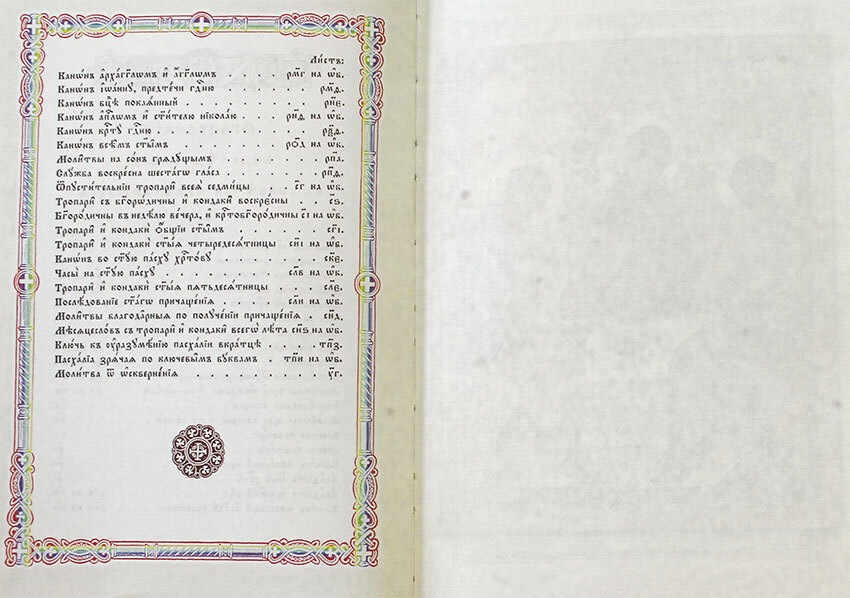 Ли́стъ:
Канѡ́нъ а҆рха́гг҃лѡмъ и҆ а҆́гг҃лѡмъ . . . . рмг на ѡ҆б.
Канѡ́нъ і҆ѡа́нну, предте́чи гд҇ню . . . . . . рмд.
Канѡ́нъ бц҃ѣ покаѧ́нный . . . . . . . . . рне.
Канѡ́нъ а҆п҇лѡмъ и҆ ст҃и́телю нікола́ю . . рнд на ѡ҆б.
Канѡ́нъ кр҇ту̀ гд҇ню . . . . . . . . . .
Канѡ́нъ всѣ̑мъ ст҃ы̑мъ . . . . . . . . на ѡ҆б.
Моли̑твы на со́нъ грѧду́щымъ . . . . . . . рпа.
Слꙋ́жба воскре́сна шеста́гѡ гла́са . . . . . рпд.
Ѿпꙋсти́тельніи тропари̑ всеѧ̀ седми́цы . . сг на ѡ҆б.
Тропари̑ съ бг҃оро́дичны и҆ кондаки̑ воскре́сны . . . сѕ.
Бг҃оро́дичны въ недѣ́лю ве́чера, и҆ кр҇тобг҃оро́дичны сі на ѡ҆б.
Тропари̑ и҆ кондаки̑ ѻ҆́бщіи ст҃ы̑мъ . . . . . . сгі.
Тропари̑ и҆ кондаки̑ ст҃ы́ѧ четыредесѧ́тницы сиі на ѡ҆б.
Канѡ́нъ во ст҃ꙋ́ю па́схꙋ хр҇то́вꙋ . . . . . . ске.
Часы̀ на ст҃ꙋ́ю па́схꙋ . . . . . . . слв на ѡ҆б.
Тропари̑ и҆ кондаки̑ ст҃ы́ѧ пѧтьдесѧ́тницы . . . сле.
Послѣ́дованіе ст҃а́гѡ причаще́ніѧ . . . сли на ѡ҆б.
Моли̑твы благода́рныѧ по полꙋче́ніи причаще́ніѧ . . снд.
Мѣсѧцесло́въ съ тропари̑ и҆ кондаки̑ всегѡ̀ лѣ́та снѕ на ѡ҆б.
Клю́чь къ ᲂу҆разꙋмѣ́нію пасха́ліи вкра́тцѣ . . . тпз.
Пасха́ліа зрѧ́чаѧ по ключевы̑мъ бꙋ́квамъ . тпи на ѡ҆б.
Моли́тва ѿ ѡ҆скверне́ніѧ . . . . . . . . . . ѵг.